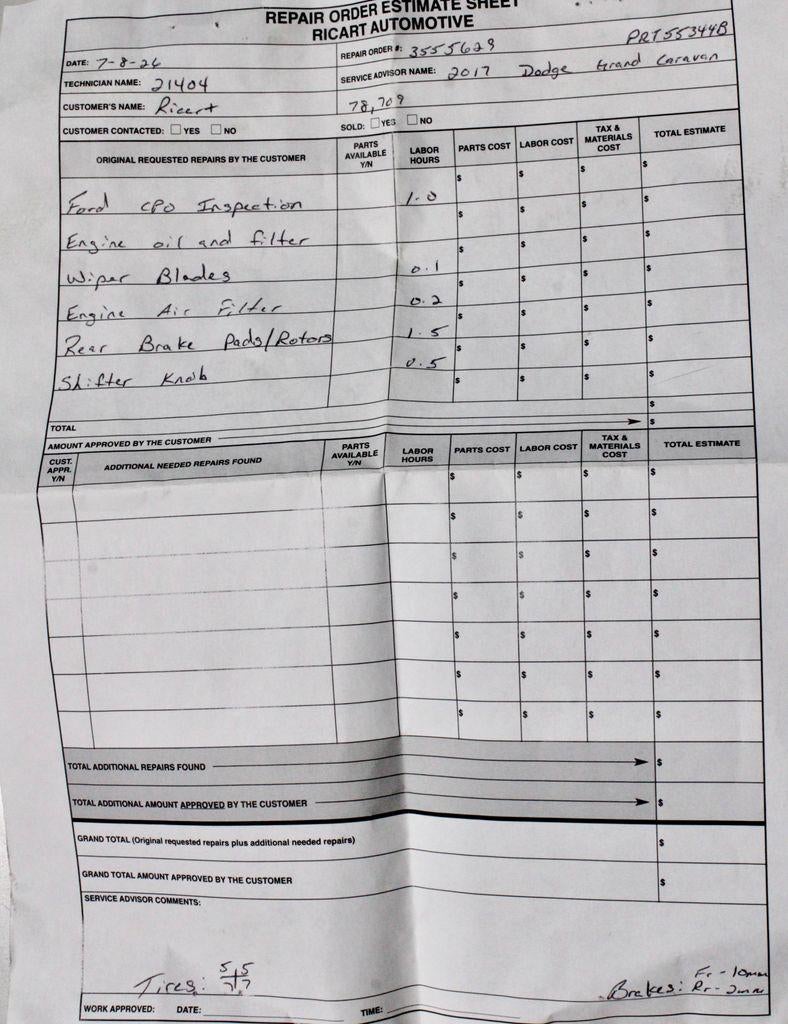 REPAIR ORDER ESTIMATE SHEET
RICART AUTOMOTIVE
PRT55344B
DATE: 7-8-26 REPAIR ORDER #: 3555629
TECHNICIAN NAME: 21404 SERVICE ADVISOR NAME: 2017 Dodge Grand Caravan
CUSTOMER'S NAME: Ricart 78,709
CUSTOMER CONTACTED: YES NO SOLD: YES NO
ORIGINAL REQUESTED REPAIRS BY THE CUSTOMER PARTS AVAILABLE Y/N LABOR HOURS PARTS COST LABOR COST TAX & MATERIALS COST TOTAL ESTIMATE
Ford CPO Inspection 1.0 $ $ $ $
Engine oil and filter $ $ $ $
Wiper Blades 0.1 $ $ $ $
Engine Air Filter 0.2 $ $ $ $
Rear Brake Pads/Rotors 1.5 $ $ $ $
Shifter Knob 0.5 $ $ $ $
$ $ $ $
TOTAL $
AMOUNT APPROVED BY THE CUSTOMER $
CUST. APPR. Y/N ADDITIONAL NEEDED REPAIRS FOUND PARTS AVAILABLE Y/N LABOR HOURS PARTS COST LABOR COST TAX & MATERIALS COST TOTAL ESTIMATE
$ $ $ $
$ $ $ $
$ $ $ $
$ $ $ $
$ $ $ $
$ $ $ $
$ $ $ $
TOTAL ADDITIONAL REPAIRS FOUND $
TOTAL ADDITIONAL AMOUNT APPROVED BY THE CUSTOMER $
GRAND TOTAL (Original requested repairs plus additional needed repairs) $
GRAND TOTAL AMOUNT APPROVED BY THE CUSTOMER $
SERVICE ADVISOR COMMENTS:
Tires: 5 5
7 7
Brakes: Fr - 10mm
Rr - 2mm
WORK APPROVED: DATE: TIME: